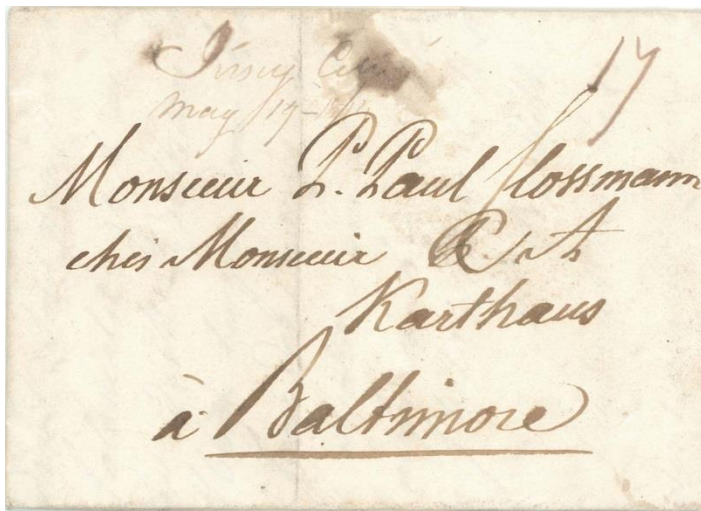 Jersey City
May 19
17
Monsieur P. Paul Clossmann
chés Monsieur P. A
Karthaus
à Baltimore